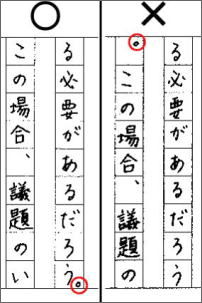 ○
る必要があるだろう。
この場合、議題のい
×
る必要があるだろう
。この場合、議題の